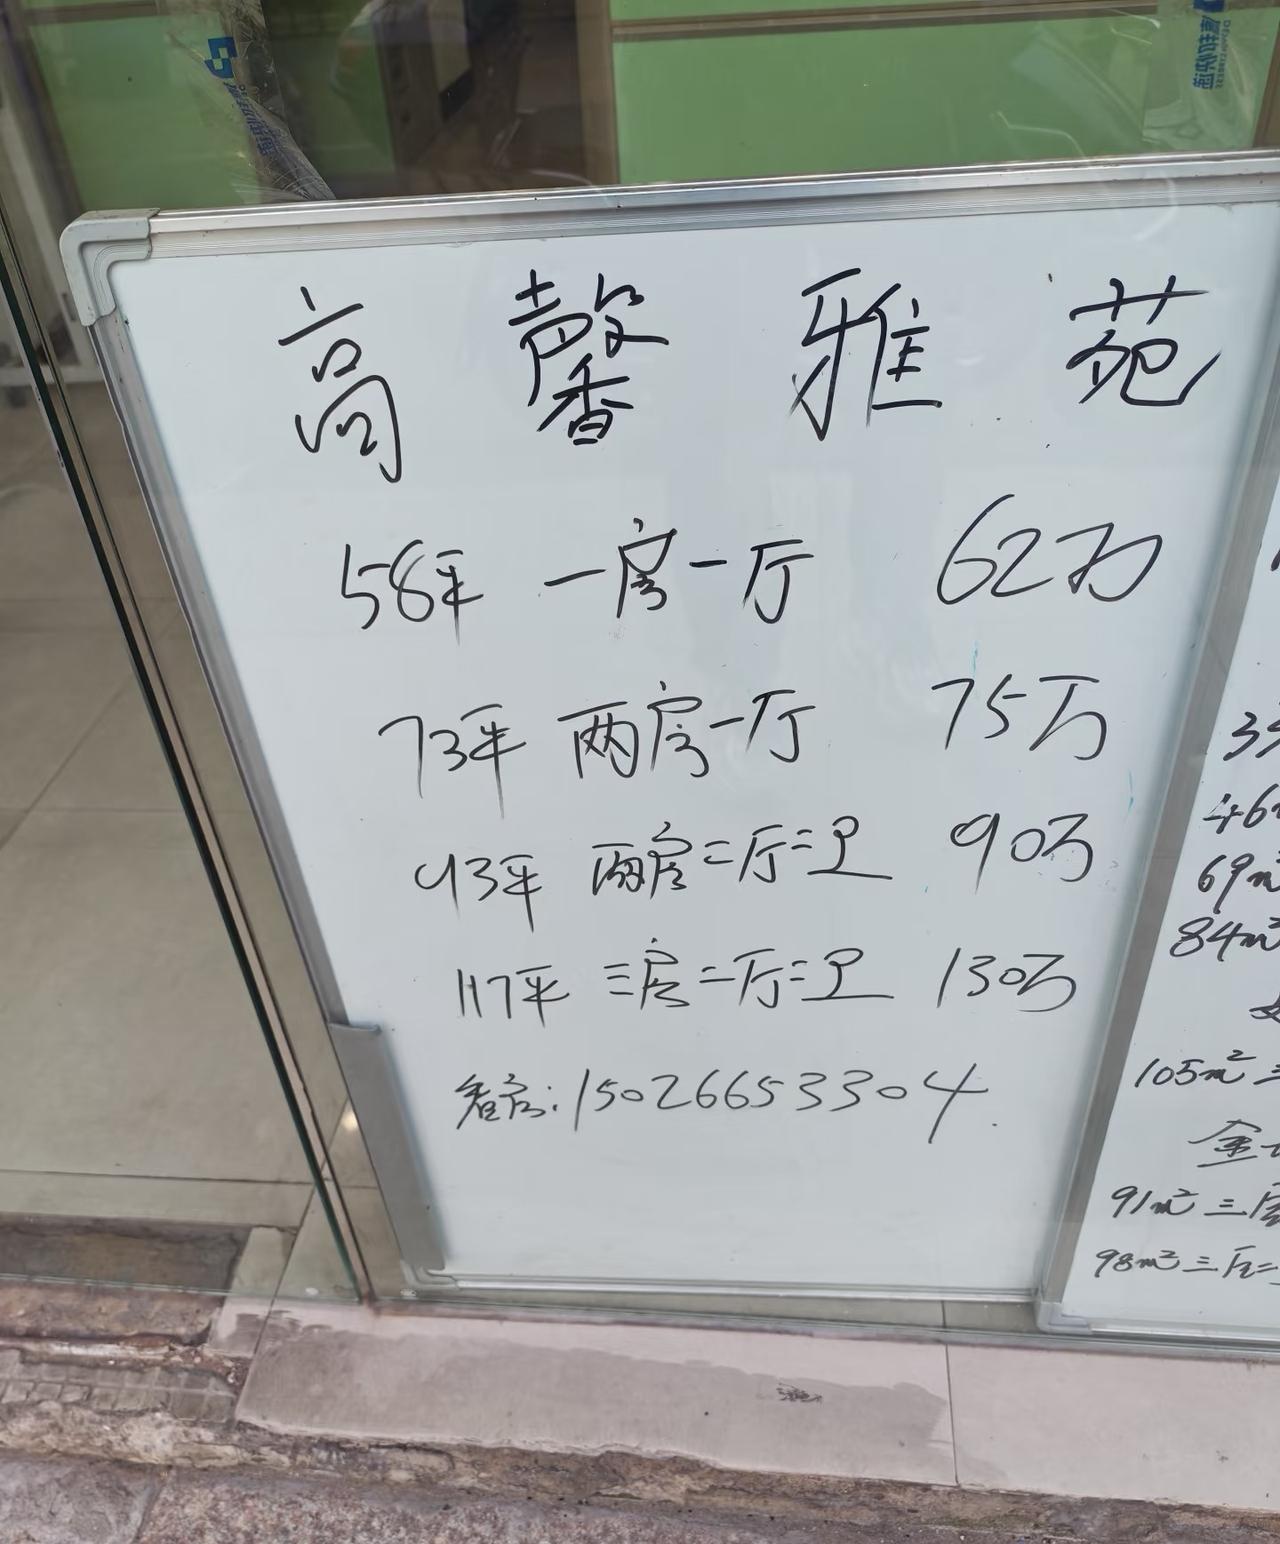 高馨雅苑
58平 一房一厅 62万
73平 两房一厅 75万
93平 两房二厅二卫 90万
117平 三房二厅二卫 130万
看房:15026653304
46
69m²
84m²
105m² 三
91m² 三房
98m² 三房二